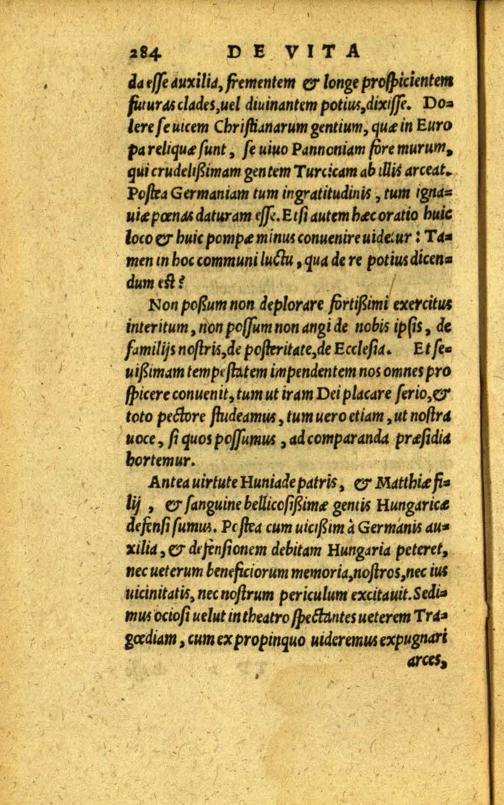 284 DE VITA
da esse auxilia, frementem & longe prospicientem
futuras clades, uel diuinantem potius, dixisse. Do=
lere se uicem Christianarum gentium, quæ in Euro
pa reliquæ sunt, se uiuo Pannoniam fore murum,
qui crudelißimam gentem Turcicam ab illis arceat.
Postea Germaniam tum ingratitudinis, tum igna=
uiæ pœnas daturam esse. Etsi autem hæc oratio huic
loco & huic pompæ minus conuenire uidetur: Ta=
men in hoc communi luctu, qua de re potius dicen=
dum est?
Non poßum non deplorare fortißimi exercitus
interitum, non possum non angi de nobis ipsis, de
familijs nostris, de posteritate, de Ecclesia. Et se=
uißimam tempestatem impendentem nos omnes pro
spicere conuenit, tum ut iram Dei placare serio, &
toto pectore studeamus, tum uero etiam, ut nostra
uoce, si quos possumus, ad comparanda præsidia
hortemur.
Antea uirtute Huniade patris, & Matthiæ fi=
lij, & sanguine bellicosißimæ gentis Hungaricæ
defensi sumus. Postea cum uicißim à Germanis au=
xilia, & defensionem debitam Hungaria peteret,
nec ueterum beneficiorum memoria, nostros, nec ius
uicinitatis, nec nostrum periculum excitauit. Sedi=
mus ociosi uelut in theatro spectantes ueterem Tra=
gœdiam, cum ex propinquo uideremus expugnari
arces,